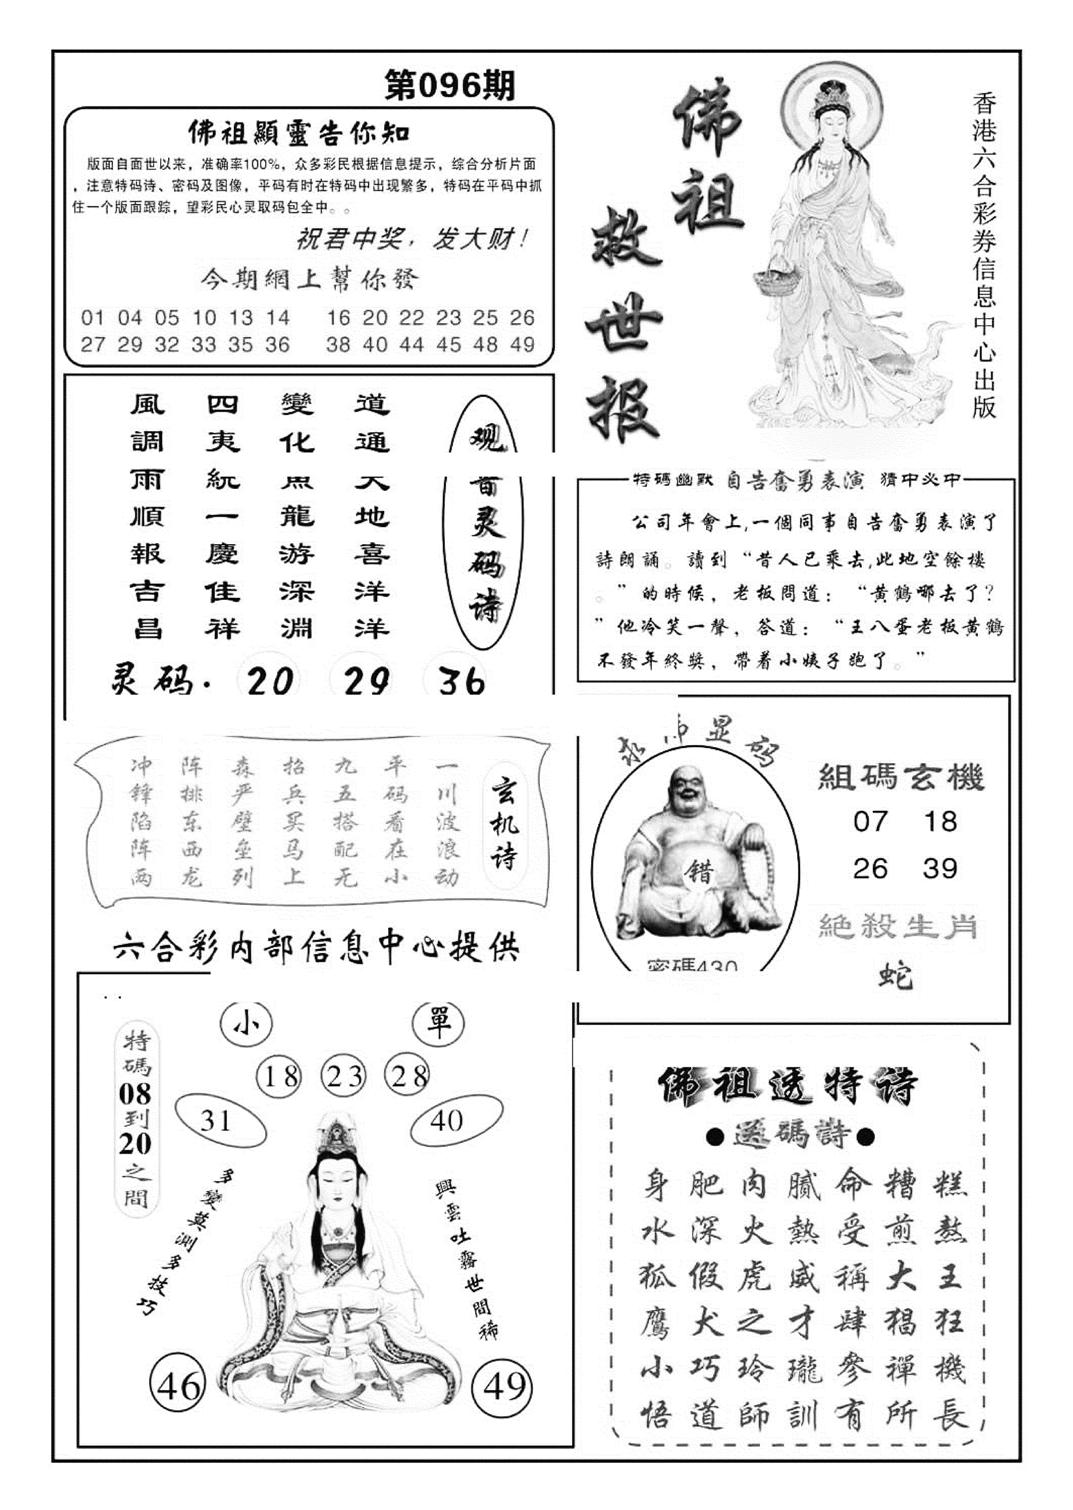 第096期
佛祖顯靈告你知
版面自面世以来，准确率100%，众多彩民根据信息提示，综合分析片面
，注意特码诗、密码及图像，平码有时在特码中出现繁多，特码在平码中抓
住一个版面跟踪，望彩民心灵取码包全中。。
祝君中奖，发大财！
今期網上幫你發
01 04 05 10 13 14 16 20 22 23 25 26
27 29 32 33 35 36 38 40 44 45 48 49
佛祖
救世报
香港六合彩券信息中心出版
观音灵码诗
道通天地喜洋洋
變化魚龍游深淵
四夷統一慶佳祥
風調雨順報吉昌
灵码. 20 29 36
特碼幽默 自告奮勇表演 猜中必中
公司年會上,一個同事自告奮勇表演了
詩朗誦。讀到“昔人已乘去,此地空餘樓
。”的時候，老板問道：“黄鶴哪去了?
”他冷笑一聲，答道：“王八蛋老板黄鶴
不發年終獎，帶着小姨子跑了。”
玄机诗
一川波浪动
平码看在小
九五搭配无
招兵买马上
森严壁垒列
阵排东西龙
冲锋陷阵两
六合彩内部信息中心提供
显码
错
密碼430
組碼玄機
07 18
26 39
絶殺生肖
蛇
特碼08到20之間
小 單
18 23 28
31 40
多變莫測多技巧
興雲吐霧世間稀
46 49
佛祖透特诗
●送碼詩●
身肥肉膩命糟糕
水深火熱受煎熬
狐假虎威稱大王
鷹犬之才肆猖狂
小巧玲瓏參禪機
悟道師訓有所長